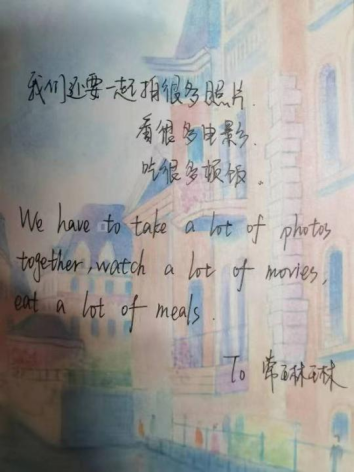 我们还要一起拍很多照片.
看很多电影.
吃很多顿饭。
We have to take a lot of photos
together, watch a lot of movies,
eat a lot of meals.
To 常琳琳